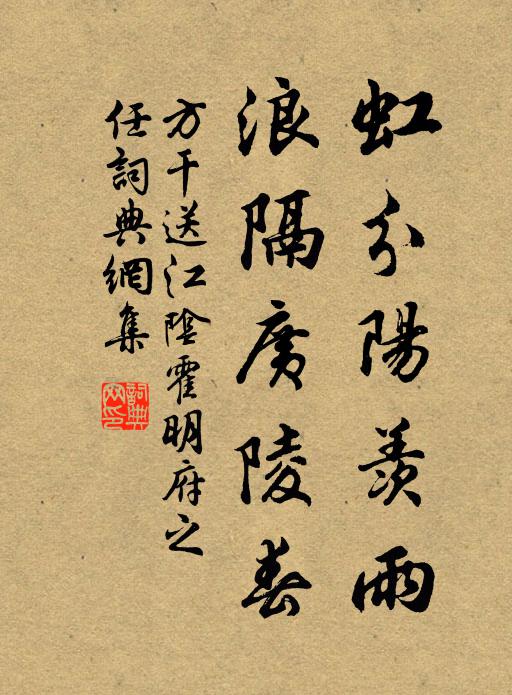 虹分陽羨雨
浪隔廣陵春
方干送江陰霍明府之
任詞典網集
詞典網印